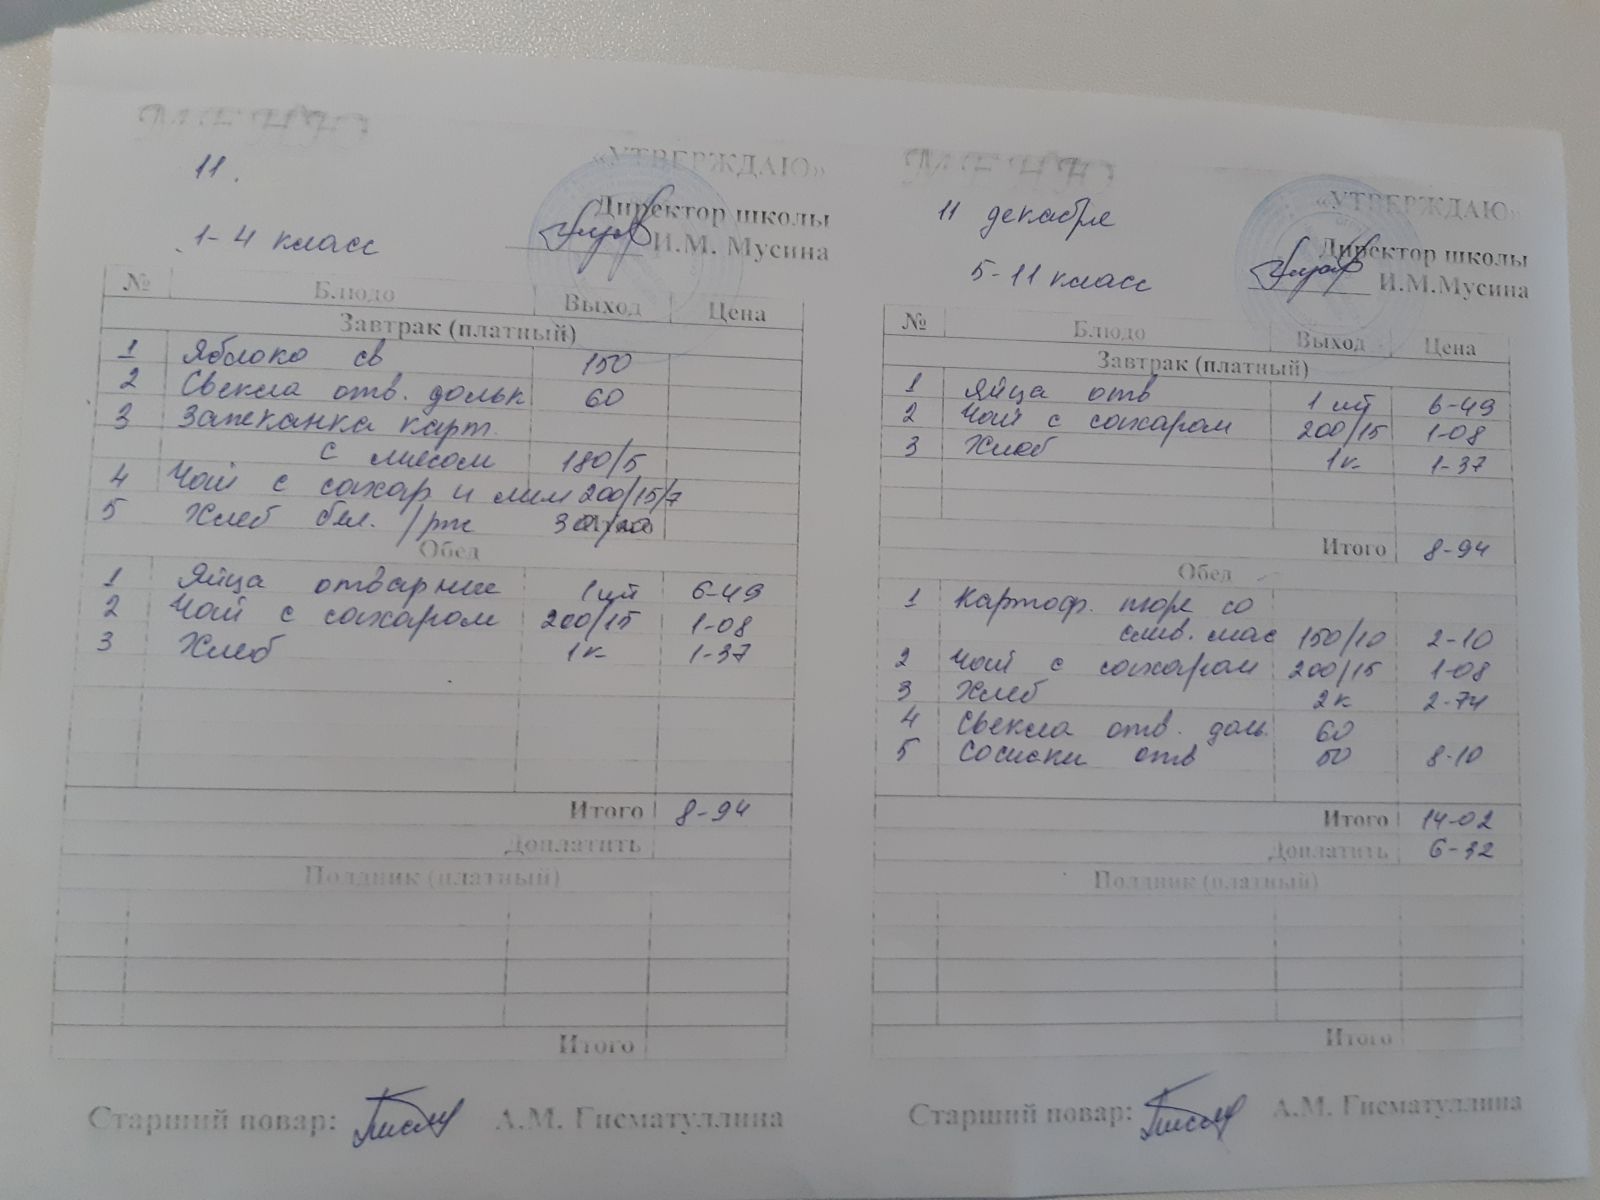 МЕНЮ
11.
«УТВЕРЖДАЮ»
Директор школы
И.М. Мусина
1-4 класс
№ Блюдо Выход Цена
Завтрак (платный)
1 Яблоко св 150
2 Свекла отв. дольк 60
3 Запеканка карт.
с мясом 180/5
4 Чай с сахар и лим 200/15/7
5 Хлеб бел. /рж
Обед
1 Яйца отварные 1 шт 6-49
2 Чай с сахаром 200/15 1-08
3 Хлеб 1к 1-37
Итого 8-94
Доплатить
Полдник (платный)
Итого
Старший повар: А.М. Гисматуллина
МЕНЮ
«УТВЕРЖДАЮ»
11 декабря
Директор школы
И.М.Мусина
5-11 класс
№ Блюдо Выход Цена
Завтрак (платный)
1 Яйца отв 1 шт 6-49
2 Чай с сахаром 200/15 1-08
3 Хлеб 1к 1-37
Итого 8-94
Обед
1 Картоф. пюре со
слив. мас 150/10 2-10
2 Чай с сахаром 200/15 1-08
3 Хлеб 2к 2-74
4 Свекла отв. доль. 60
5 Сосиски отв 50 8-10
Итого 14-02
Доплатить 6-32
Полдник (платный)
Итого
Старший повар: А.М. Гисматуллина